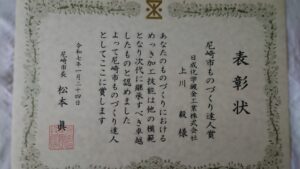 表彰状
尼崎市ものづくり達人賞
日成化学鍍金工業株式会社
上川 毅 様
あなたのものづくりにおける
めっき加工技能は他の模範
となり次代に継承すべき卓越
したものと認めました
よって尼崎市ものづくり達人
としてここに賞します
令和七年一月二十四日
尼崎市長 松本 眞